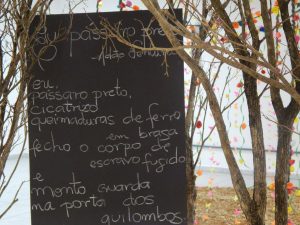 eu, pássaro preto
Adão Ventura
eu,
pássaro preto,
cicatrizo
queimaduras de ferro
em brasa
fecho o corpo de
escravo fugido
e
monto guarda
na porta dos
quilombos